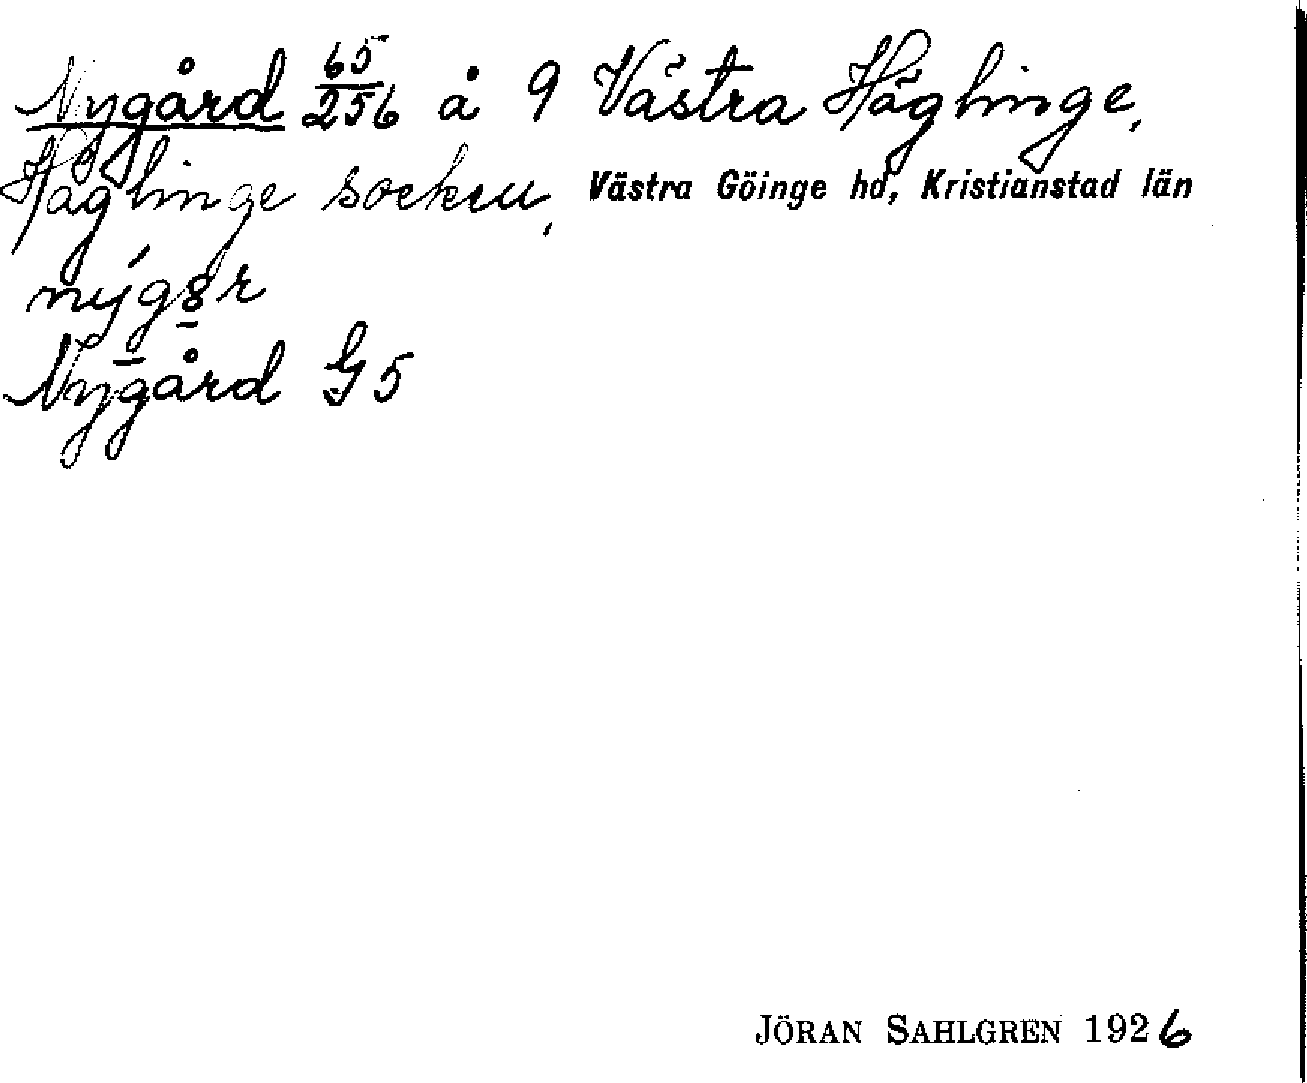 Nygård 65/256 å 9 Västra Häglinge,
Häglinge socken, Västra Göinge hd, Kristianstad län
Nygård G5
JÖRAN SAHLGREN 1926